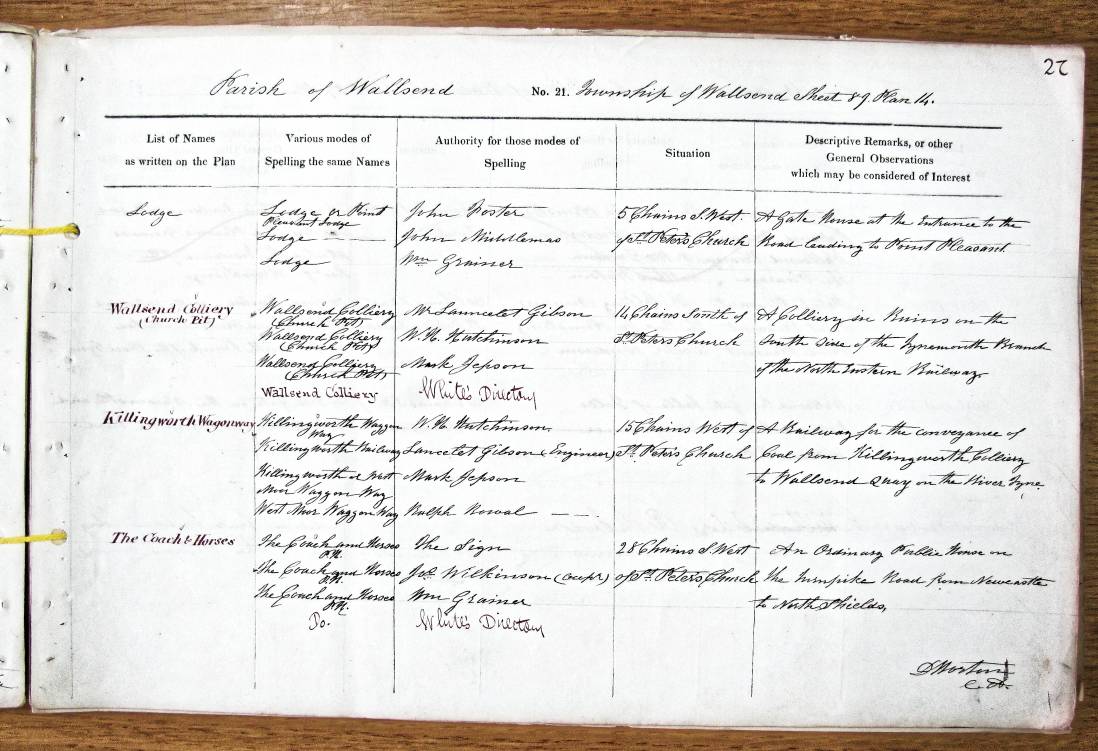 27
Parish of Wallsend No. 21. Township of Wallsend Sheet 89 Plan 14.
List of Names
as written on the Plan
Various modes of
Spelling the same Names
Authority for those modes of
Spelling
Situation
Descriptive Remarks, or other
General Observations
which may be considered of Interest
Lodge
Lodge or Point
Pleasant Lodge
Lodge
Lodge
John Foster
John Middlemas
Wm Grainer
5 Chains S. West
of St. Peter's Church
A Gate House at the Entrance to the
Road leading to Point Pleasant.
Wallsend Colliery
(Church Pit)
Wallsend Colliery
(Church Pit)
Wallsend Colliery
(Church Pit)
Wallsend Colliery
(Church Pit)
Wallsend Colliery
Mr Launcelet Gibson
W.H. Hutchinson
Mark Jepson
White's Directory
14 Chains South of
St. Peters Church
A Colliery in Ruins on the
South Side of the Tynemouth Branch
of the North Eastern Railway.
Killingworth Wagonway
Killingworth Waggon
Way
Killingworth Railway
Killingworth or West
Moor Waggon Way
West Moor Waggon Way
W.H. Hutchinson.
Lancelet Gibson (Engineer)
Mark Jepson
Ralph Rowal
15 Chains West of
St. Peter's Church
A Railway for the conveyance of
Coal from Killingworth Colliery
to Wallsend Quay on the River Tyne.
The Coach & Horses
The Coach and Horses
P.H.
The Coach and Horses
P.H.
The Coach and Horses
P.H.
Do.
The Sign
Jos. Wilkinson (Occp'r)
Wm Grainer
White's Directory
28 Chains S. West
of St. Peters Church
An Ordinary Public House on
the Turnpike Road from Newcastle
to North Shields,